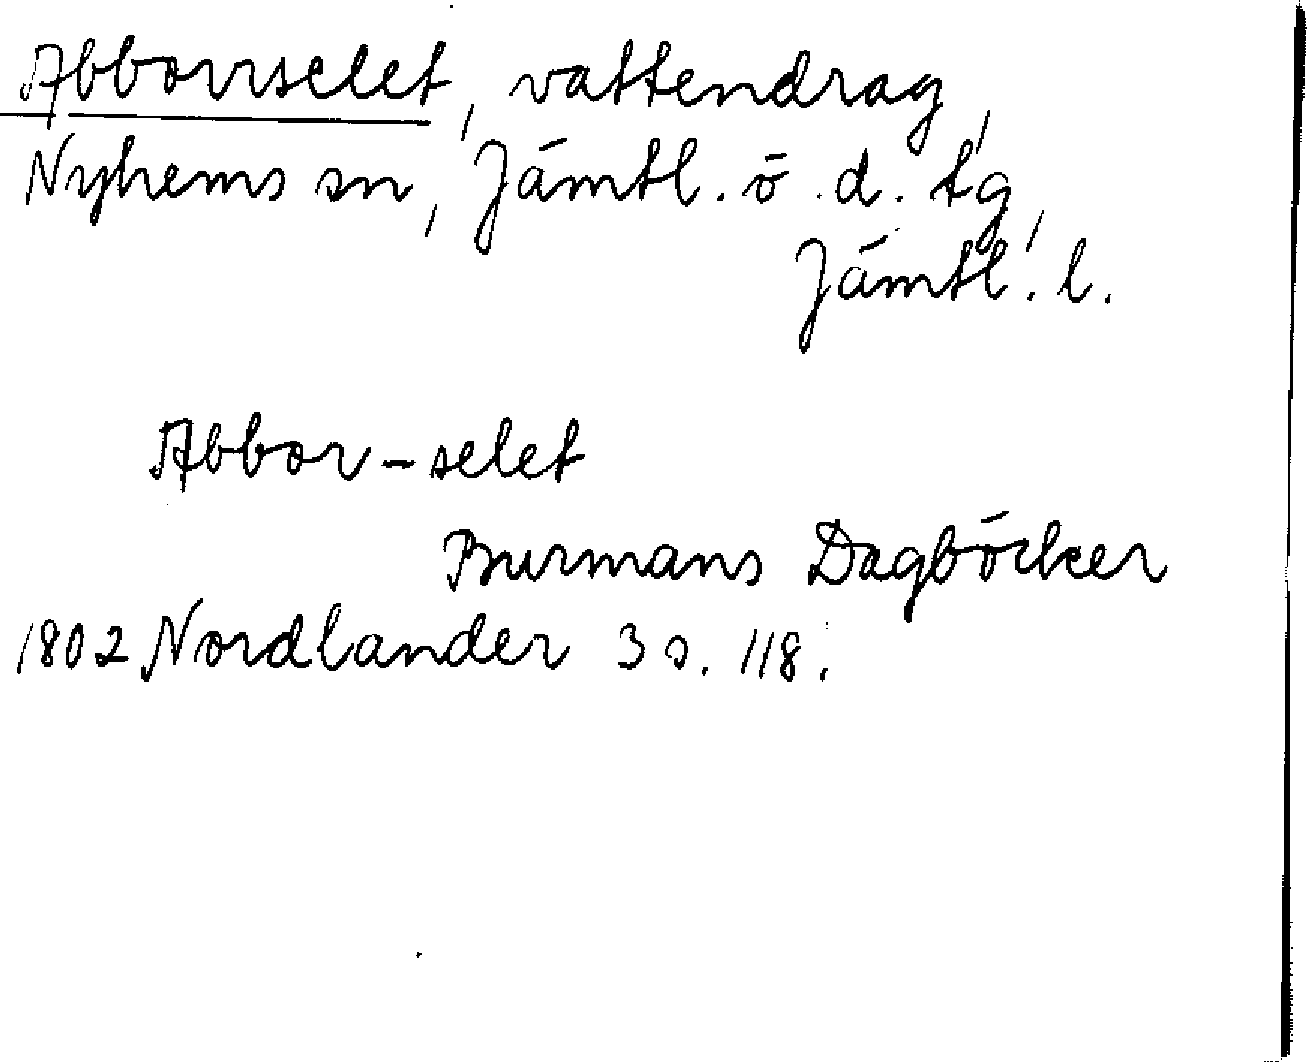 Abborrselet, vattendrag,
Nyhems sn, Jämtl. ö. d. tg,
Jämtl. l.
Abbor-selet
Burmans Dagböcker
1802 Nordlander 3 s. 118.